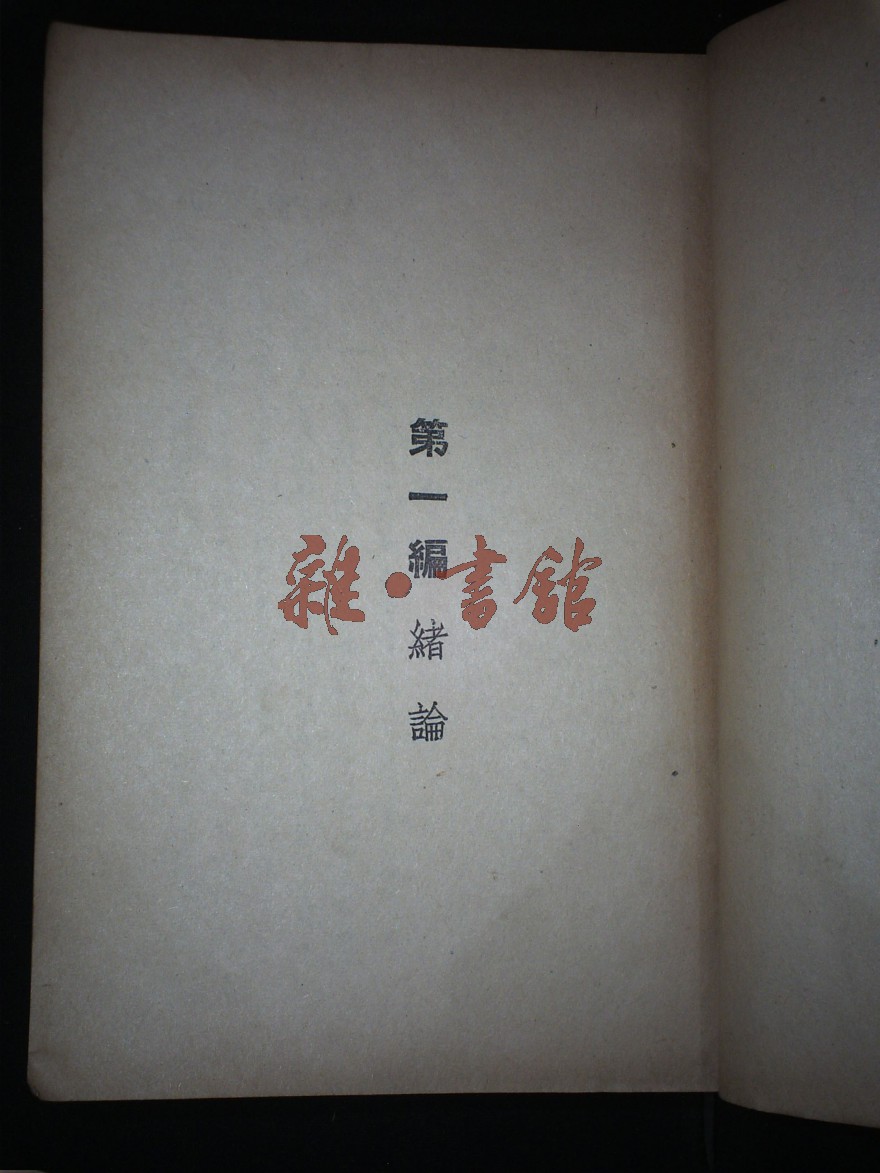 第一編 緒論
雜·書館